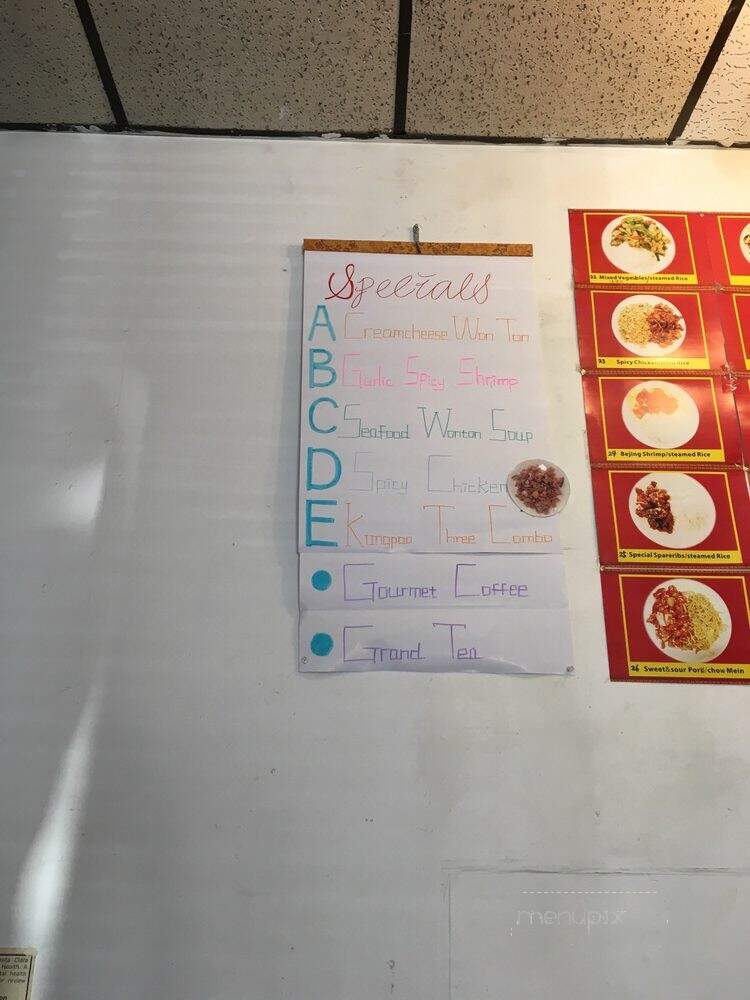 Specials
A Creamcheese Won Ton
B Garlic Spicy Shrimp
C Seafood Wonton Soup
D Spicy Chicken
E Kungpao Three Combo
Gourmet Coffee
Grand Tea
22 Mixed Vegetbles/steamed Rice
23 Spicy Chicken/ Rice
24 Bejing Shrimp/steamed Rice
25 Special Spareribs/steamed Rice
26 Sweet&sour Pork/chow Mein
Clara
Health A
health
review
menupix